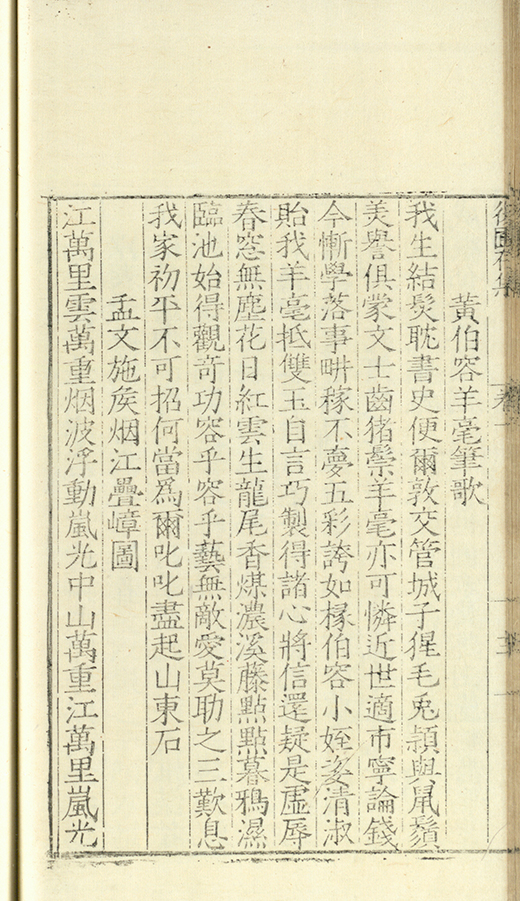 黃伯容羊毫筆歌
我生結髮耽書史便爾敦交管城子猩毛兎頴與鼠鬚
美譽俱蒙文士齒猪鬃羊毫亦可憐近世適市寧論錢
今慚學落事畊稼不夢五彩誇如椽伯容小姪姿清淑
貽我羊毫抵雙玉自言巧製得諸心將信還疑是虛辱
春窓無塵花日紅雲生龍尾香煤濃溪藤點點暮鴉濕
臨池始得觀奇功容乎容乎藝無敵愛莫助之三歎息
我家初平不可招何當爲爾叱叱盡起山東石
孟文施矦烟江疊嶂圖
江萬里雲萬重烟波浮動嵐光中山萬重江萬里嵐光